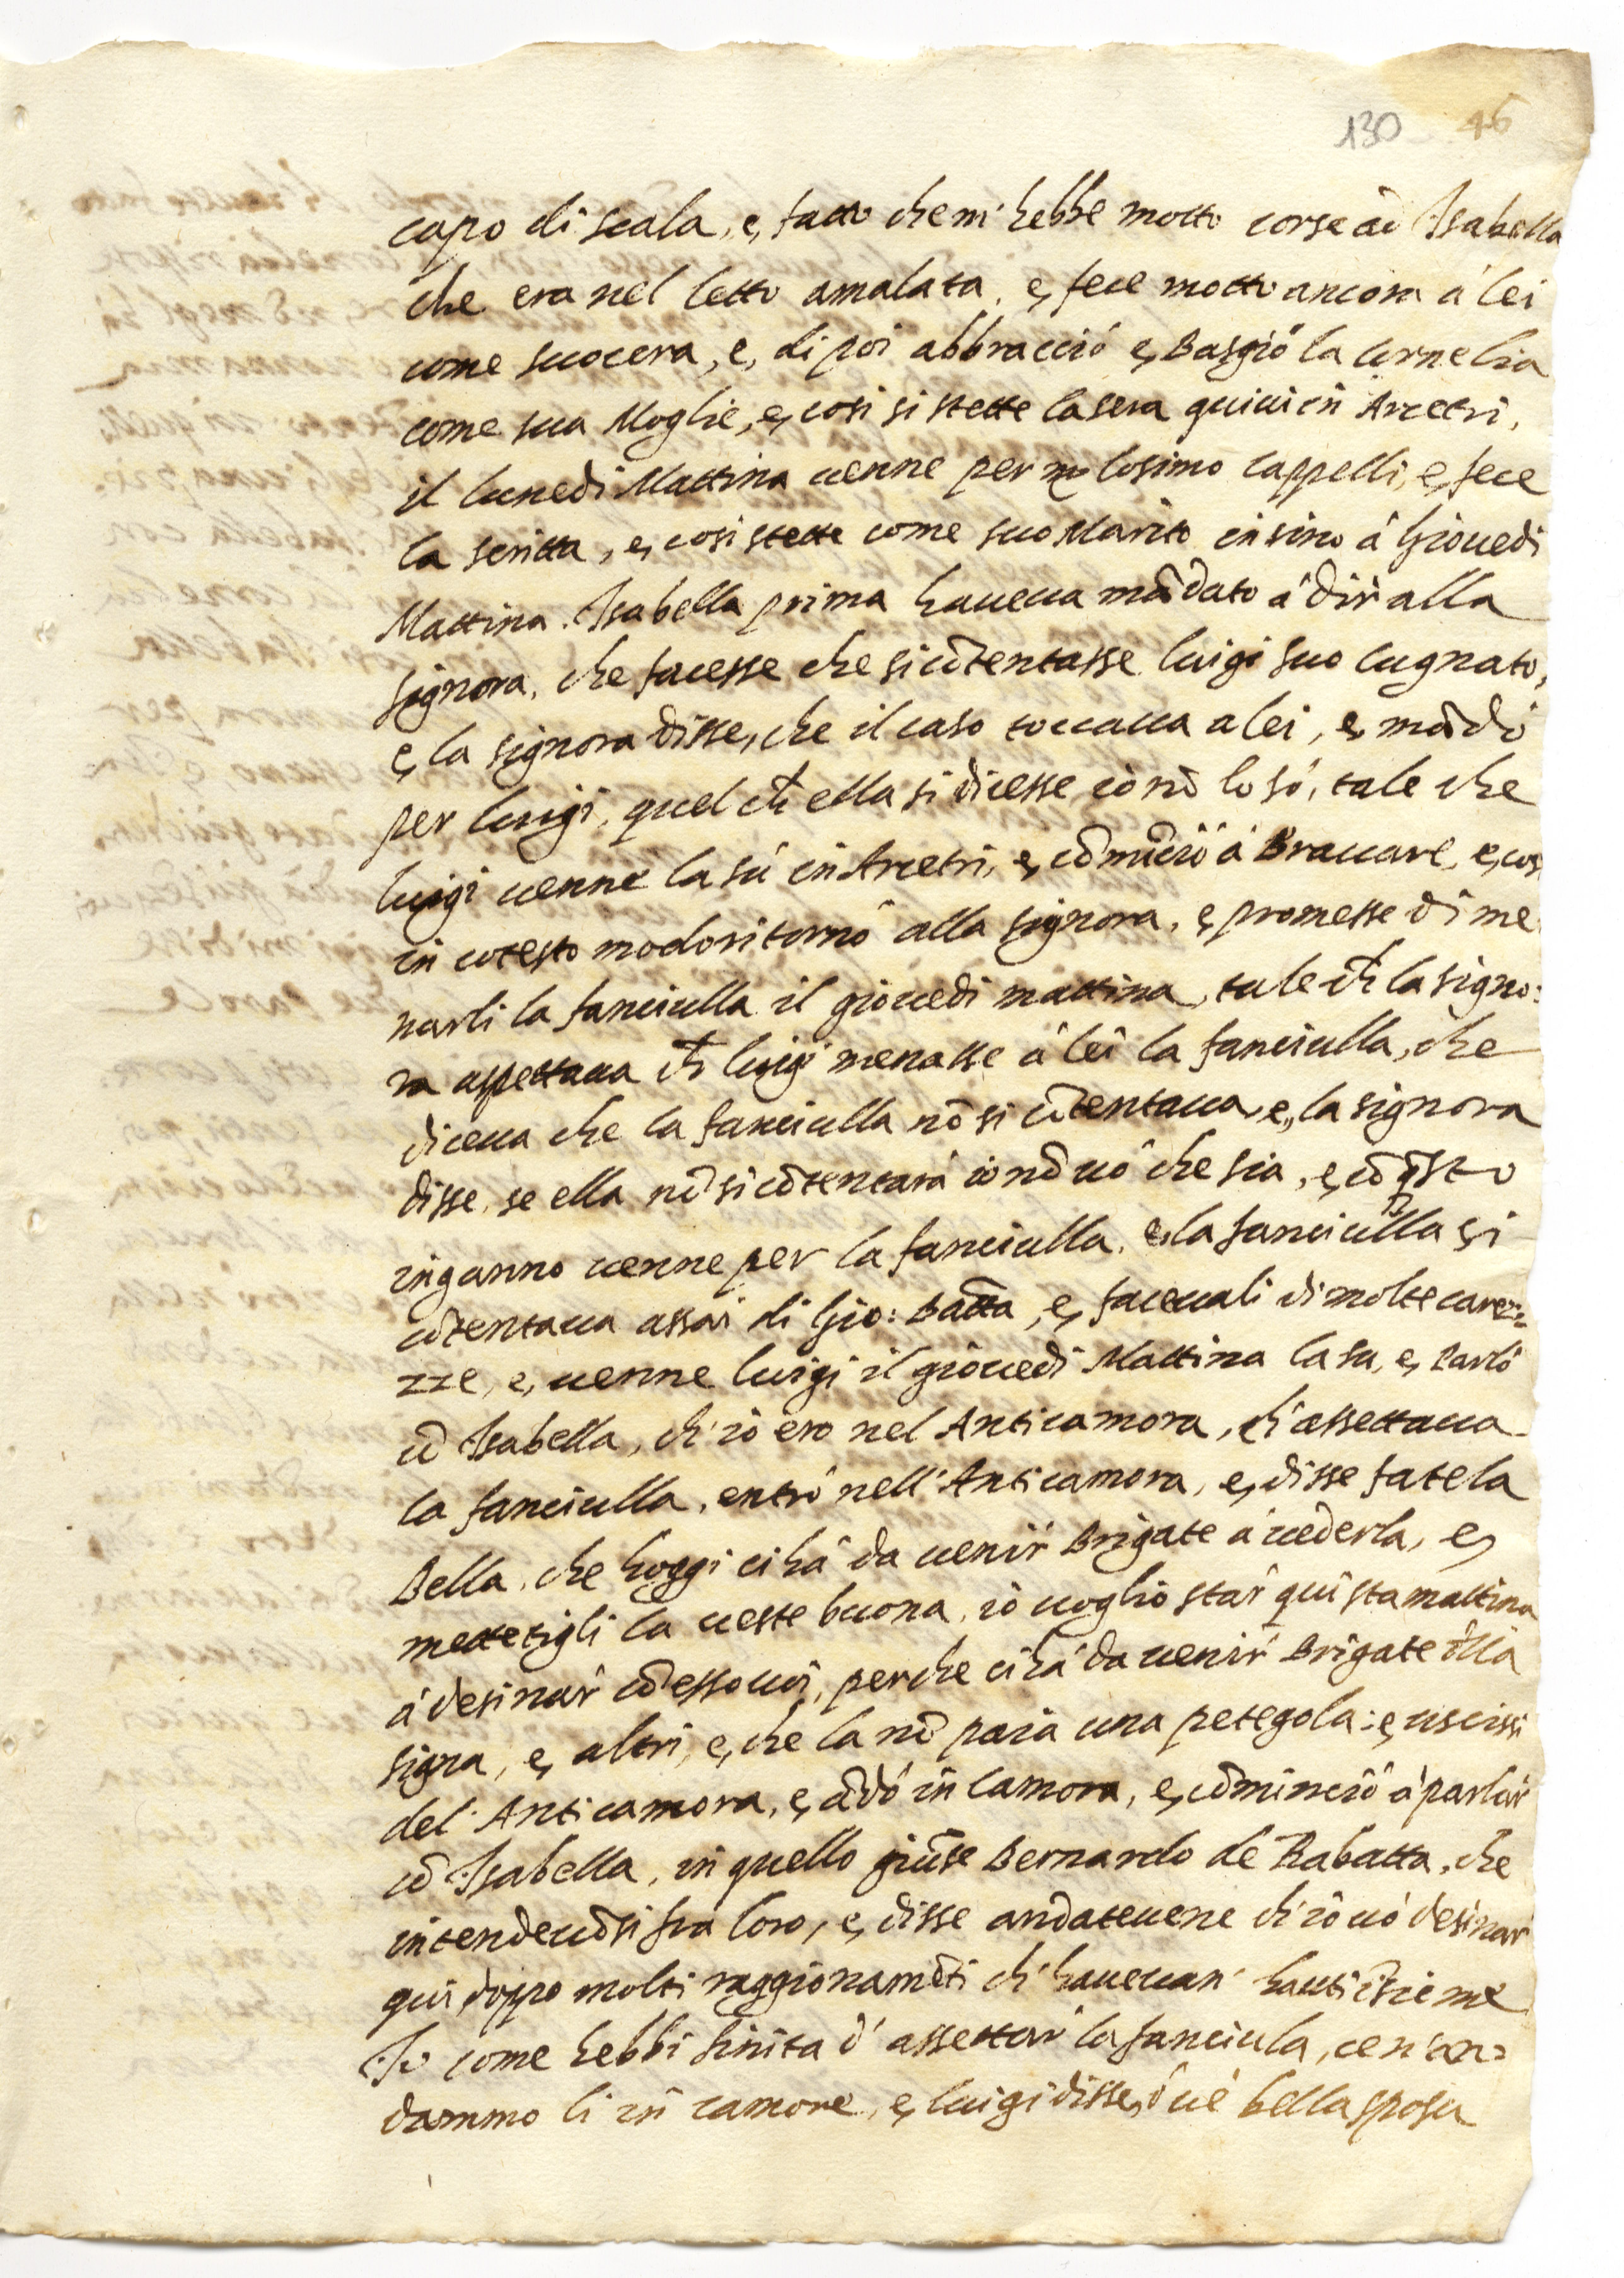 130 46
capo di scala, e, fatto che m' hebbe motto corse ad Isabella
che era nel letto amalata, e, fece motto ancora á lei
come suocera, e, di poi abbracció e, Basgió la Cornelia
come sua Moglie, e, cosi si stette la sera quiui in Arcetri,
il lunedi Mattina uenne per Cosimo Cappelli, e, fece
la scritta, e, cosi stette come suo Marito insino á Giouedi
Mattina. Isabella prima haueua mādato á dir alla
signora, che facesse che si cōtentasse luigi suo Cugnato,
e, la signora disse, che il caso toccaua a lei, e, mādó
per luigi, quel ch̄ ella si dicesse io nō lo só, tale che
luigi uenne la sú in Arcetri, e, cōmīció á Brauare, e, cosi
in cotesto modo ritornó alla signora, e, promesse di me
narli la fanciulla il giouedi mattina, tale ch̄ la signo:
ra aspettaua ch̄ luigi menasse á lei la fanciulla, che
diceua che la fanciulla nō si cōtentaua, e, la signora
disse, se ella nō si cōtentará io nō uó che sia, e, cō q̄sto
inganno uenne per la fanciulla, e, la fanciulla si
cōtentaua assai di Gio: Batta, e, faceuali di molte carez:
zze, e, uenne luigi il giouedi Mattina la su, e, Parló
cō Isabella, ch' io ero nel Anticamora, ch' assettaua
la fanciulla, entró nell' Anticamora, e, disse fatela
Bella, che hoggi ci há da uenir Brigate á uederla, e,
mettetigli la ueste buona, io uoglio star qui sta mattina
á desinar cō esso uoi, perche ci há da uenir Brigate d̄lla
sig̅ra, e, altri, e, che la nō paia una petegola: e, uscissi
del Anticamora, e, ādó in Camora, e, cōminció á parlar
cō Isabella, in quello giūse Bernardo de Rabatta, che
intendeuōsi fra loro, e, disse andateuene ch' io uó desinar
qui doppo molti raggionamēti ch' haueuan' hauti īsieme
Io come hebbi finita d' assettar la fanciula, ce n' an:
dammo li in camore, e, luigi disse, ó ué bella sposa